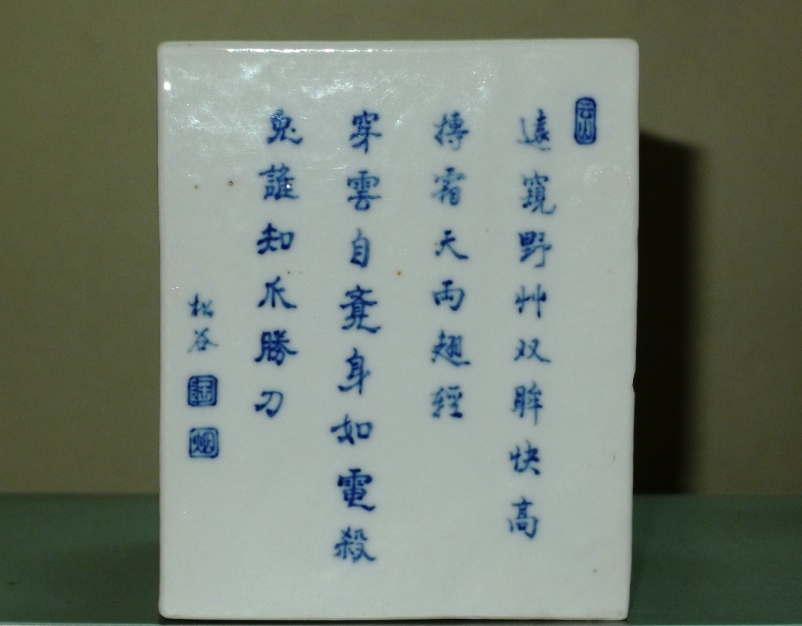 遠窺野艸双眸快高
搏霜天両翅輕
穿雲自身如電殺
兎誰知爪勝刀
松谷